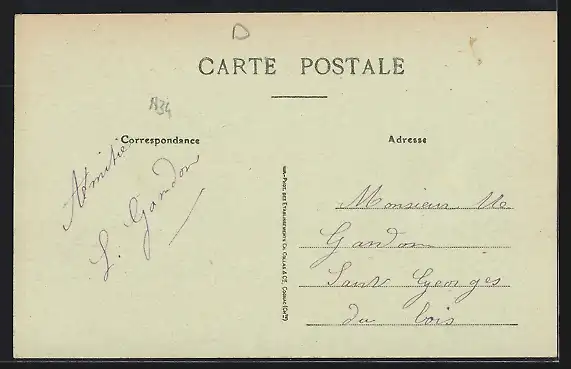 D
CARTE POSTALE
A34
Correspondance
Adresse
Amitié
L. Gandon
Phot. des Etablissements Ch. Collas & Cie, Cognac (Chte)
Monsieur Me
Gandon
Saint Georges
du bois